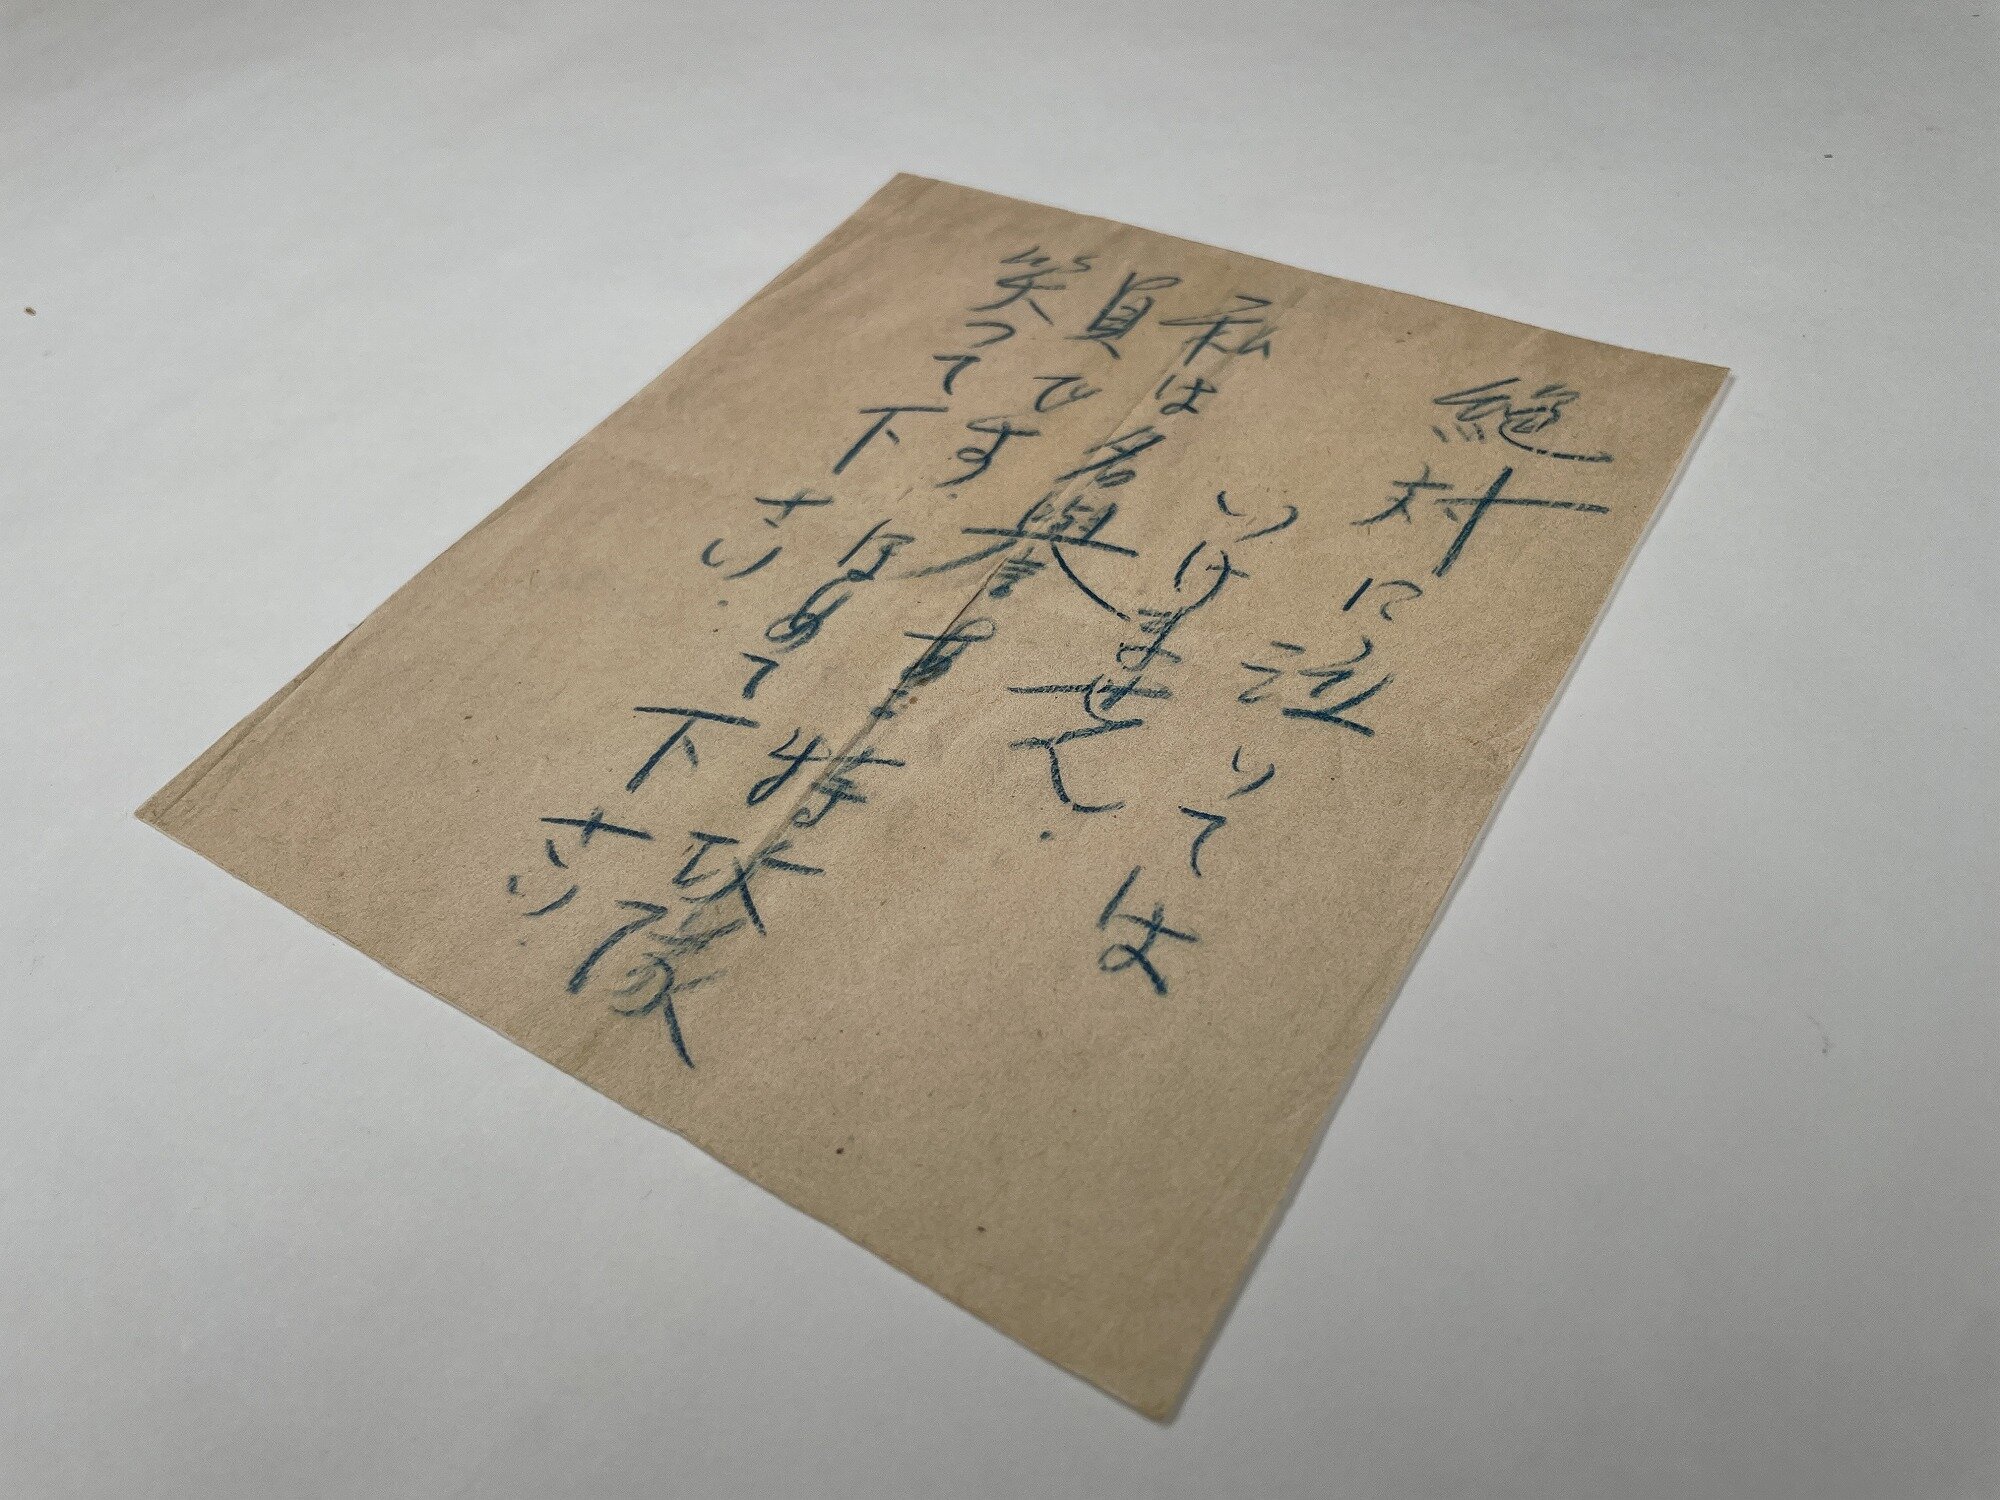 絶対に泣いては
いけません.
私は名譽ある特攻隊
員です. ほめて下さい
笑って下さい.